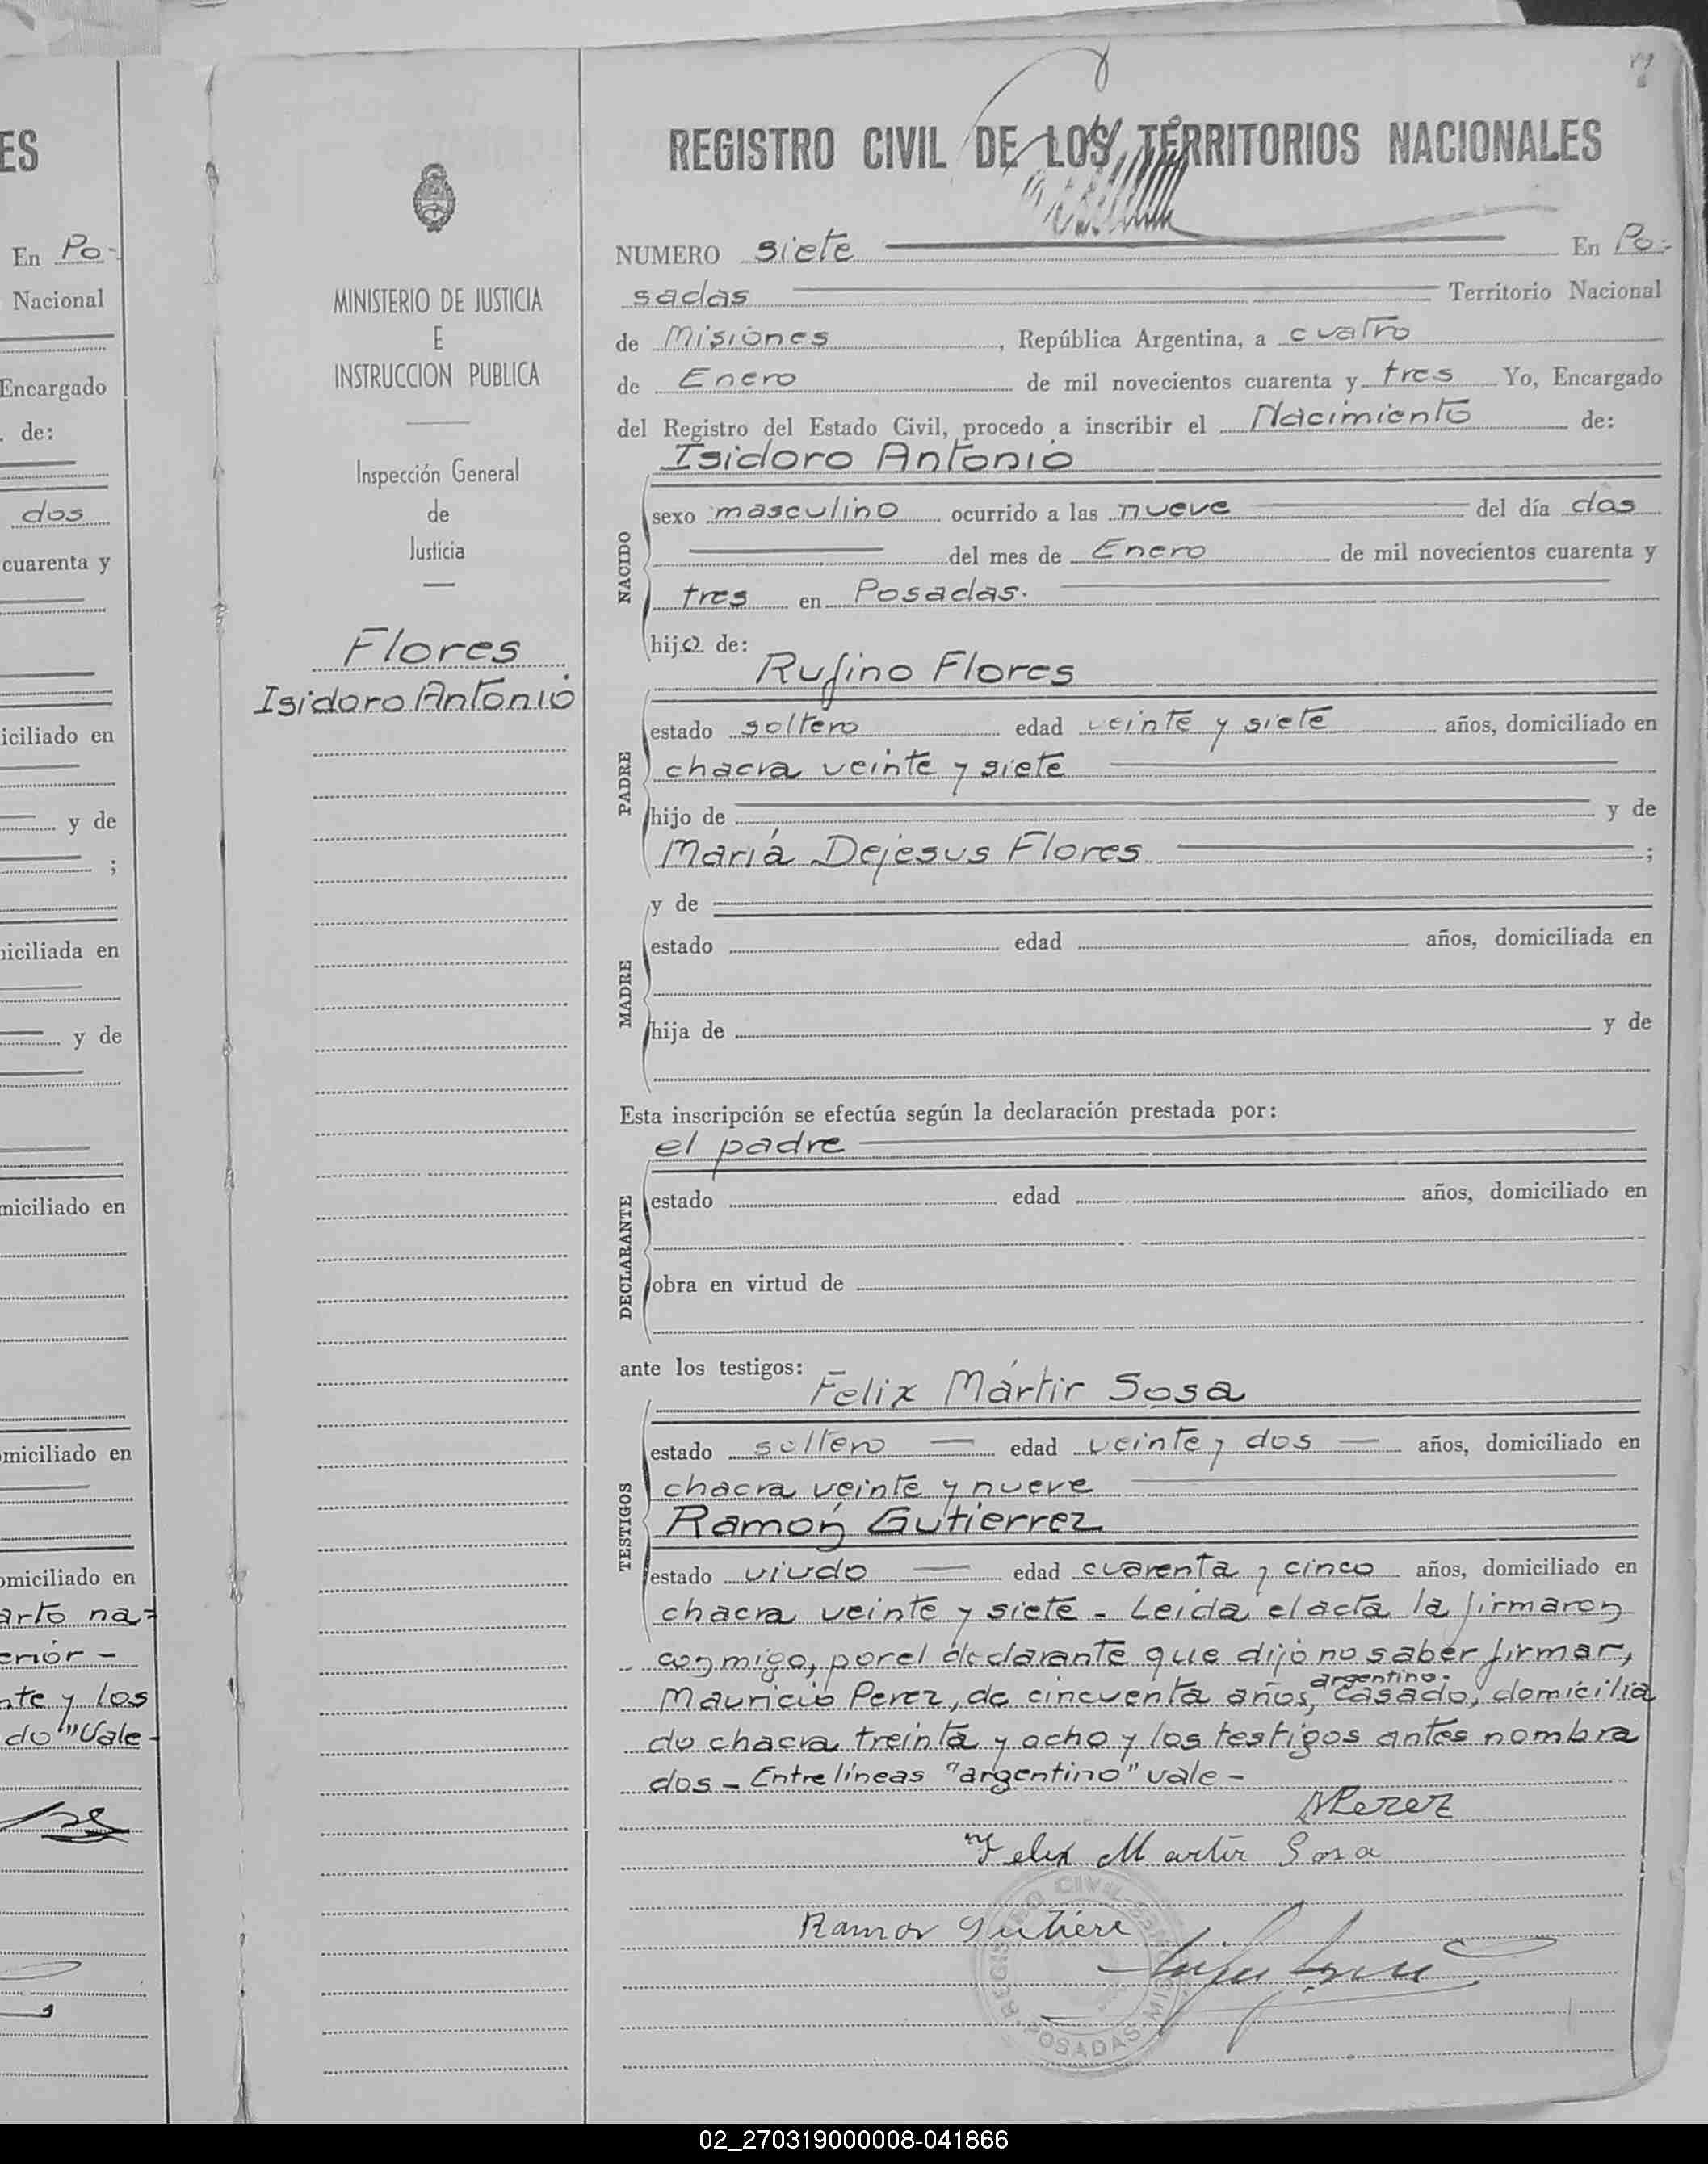 ES
En Po-
Nacional
Encargado
. de:
dos
cuarenta y
iciliado en
y de
;
niciliada en
y de
miciliado en
omiciliado en
omiciliado en
arto na=
erior -
nte y los
do "Vale -
MINISTERIO DE JUSTICIA
E
INSTRUCCION PUBLICA
Inspección General
de
Justicia
Flores
Isidoro Antonio
REGISTRO CIVIL DE LOS TERRITORIOS NACIONALES
NUMERO siete En Po-
sadas Territorio Nacional
de Misiones, República Argentina, a cuatro
de Enero de mil novecientos cuarenta y tres Yo, Encargado
del Registro del Estado Civil, procedo a inscribir el Nacimiento de:
Isidoro Antonio
NACIDO
sexo masculino ocurrido a las nueve del día dos
del mes de Enero de mil novecientos cuarenta y
tres en Posadas.
hijo de:
Rufino Flores
PADRE
estado soltero edad veinte y siete años, domiciliado en
chacra veinte y siete
hijo de y de
María Dejesus Flores ;
y de
MADRE
estado edad años, domiciliada en
hija de y de
Esta inscripción se efectúa según la declaración prestada por:
el padre
DECLARANTE
estado edad años, domiciliado en
obra en virtud de
ante los testigos:
Felix Mártir Sosa
TESTIGOS
estado soltero — edad veinte y dos — años, domiciliado en
chacra veinte y nueve
Ramón Gutierrez
estado viudo — edad cuarenta y cinco años, domiciliado en
chacra veinte y siete - Leida el acta la firmaron
conmigo, por el declarante que dijo no saber firmar,
argentino.
Mauricio Perez, de cincuenta años, casado, domicilia
do chacra treinta y ocho y los testigos antes nombra
dos - Entre líneas "argentino" vale -
MPerez
Felix Martir Sosa
Ramon Gutiere
REGISTRO CIVIL
POSADAS MISIONES
02_270319000008-041866